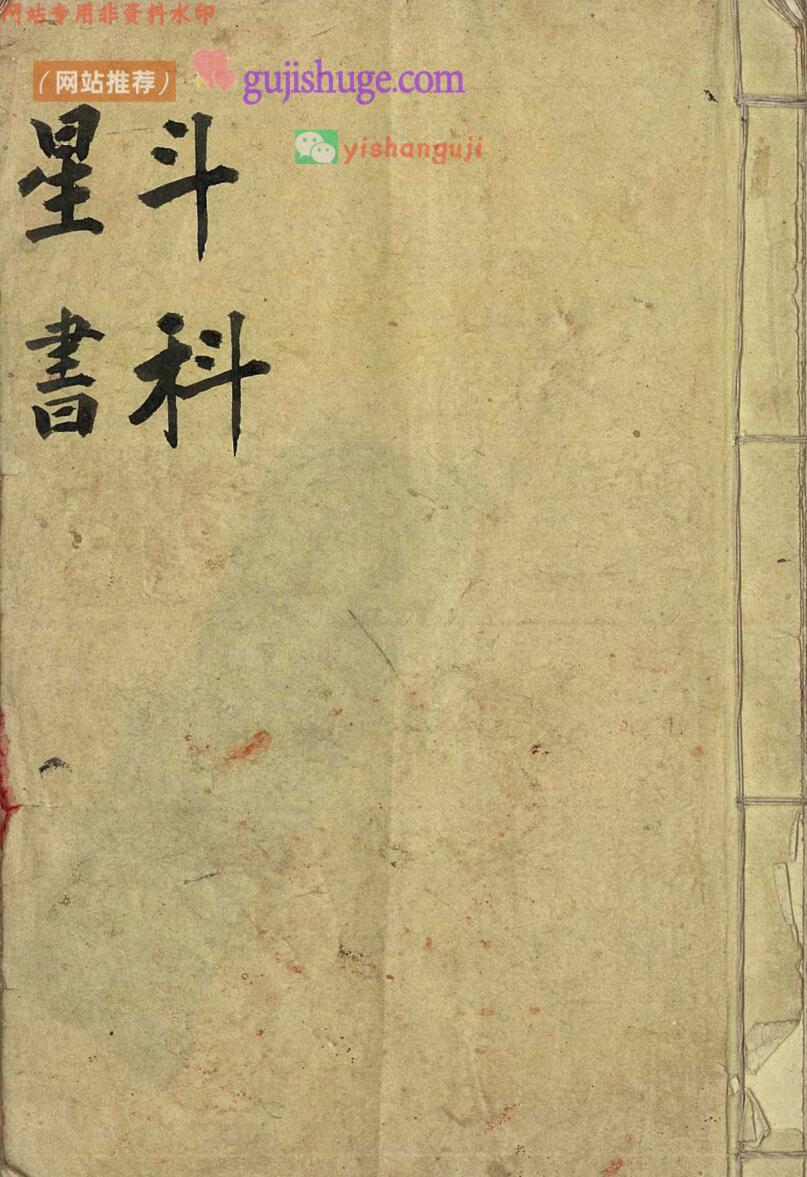 网站专用非资料水印
（网站推荐）
gujishuge.com
yishanguji
斗科
星書